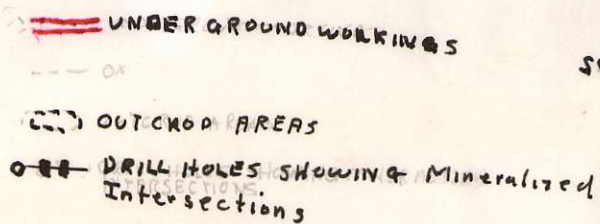 UNDERGROUND WORKINGS
OUTCROP AREAS
DRILL HOLES SHOWING Mineralized
Intersections